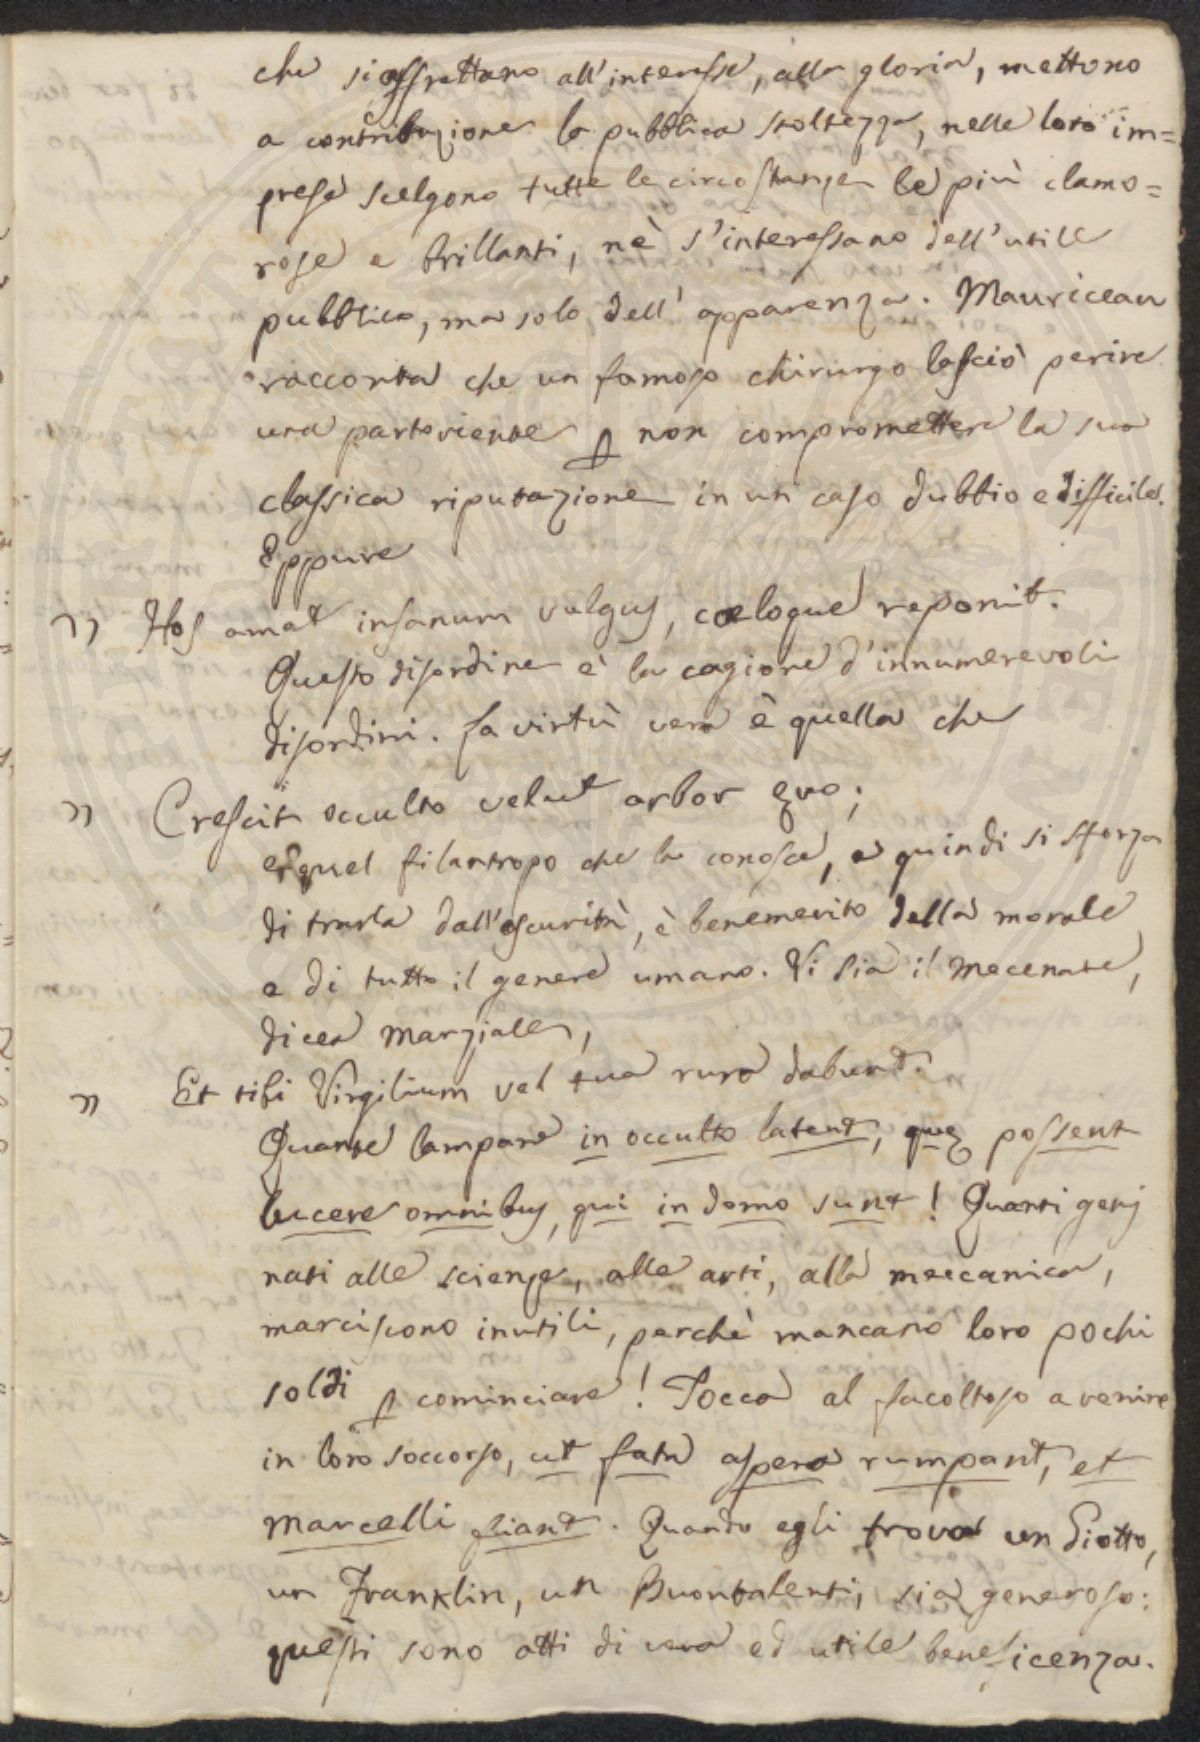 che si affrettano all'interesse, alla gloria, mettono
a contribuzione la pubblica stoltezza, nelle loro im=
prese scelgono tutte le circostanze le più clamo=
rose e brillanti, nè s'interessano dell'utile
pubblico, ma solo dell'apparenza. Mauriceau
racconta che un famoso chirurgo lasciò perire
una partoriente p non compromettere la sua
classica riputazione in un caso dubbio e difficile.
Eppure
" Hos amat insanum vulgus, coeloque reponit.
Questo disordine è la cagione d'innumerevoli
disordini. La virtù vera è quella che
" Crescit occulto velut arbor ævo;
e quel filantropo che la conosce, e quindi si sforza
di trarla dall'oscurità, è benemerito della morale
e di tutto il genere umano. Vi sia il Mecenate,
dicea Marziale,
" Et tibi Virgilium vel tua rura dabunt.
Quante lampane in occulto latent, quę possent
lucere omnibus, qui in domo sunt! Quanti genj
nati alle scienze, alle arti, alla meccanica,
marciscono inutili, perchè mancano loro pochi
soldi p cominciare! Tocca al facoltoso a venire
in loro soccorso, ut fata aspera rumpant, et
Marcelli fiant. Quando egli trova un Giotto,
un Franklin, un Buontalenti, sia generoso:
questi sono atti di vera ed utile beneficenza.